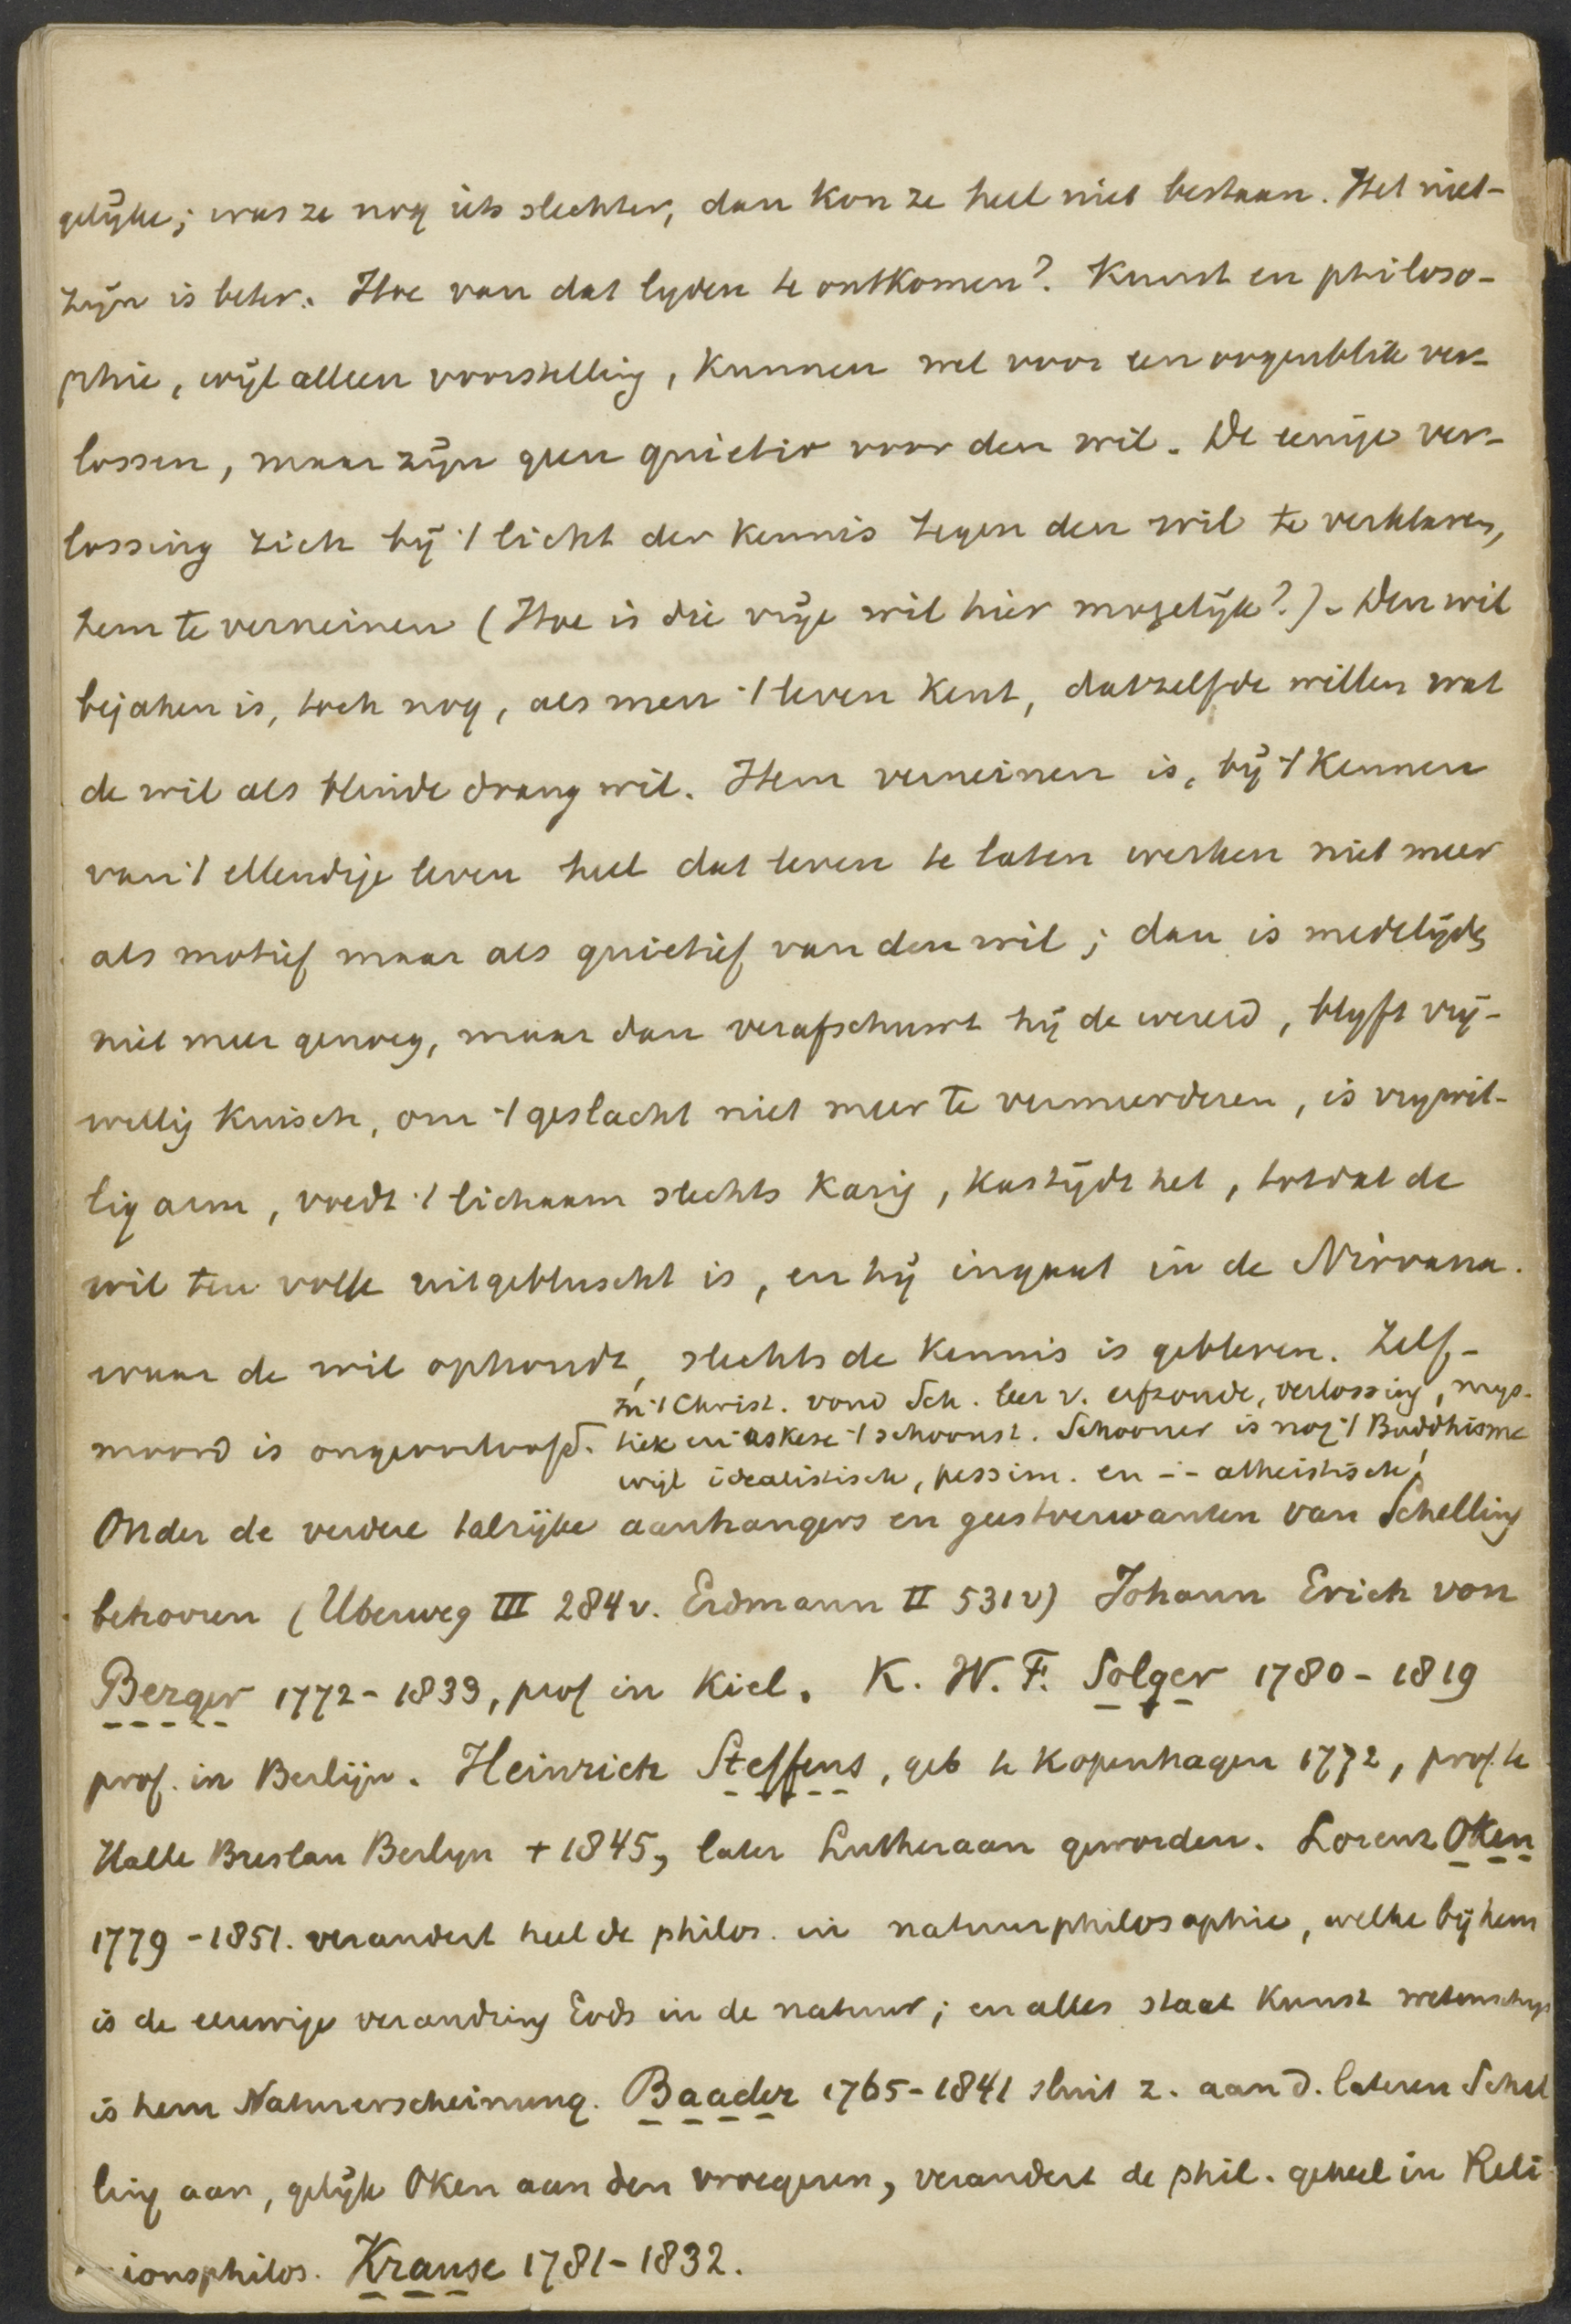 gelijke; was ze nog iets slechter, dan kon ze heel niet bestaan. Het niet-
zijn is beter. Hoe van dat lyden te ontkomen? Kunst en philoso-
phie, wijl alleen voorstelling, kunnen wel voor een oogenblik ver-
lossen, maar zijn geen quietiv voor den wil. De eenige ver-
lossing zich bij 't licht der kennis tegen den wil te verklaren,
hem te verneinen (Hoe is die vrije wil hier mogelijk?). Den wil
bejahen is, toch nog, als men 't leven kent, datzelfde willen wat
de wil als blinde drang wil. Hem verneinen is, bij 't kennen
van 't ellendige leven heel dat leven te laten werken niet meer
als motief maar als quietief van den wil; dan is medelijden
niet meer genoeg, maar dan verafschuwt hij de wereld, blyft vrij-
willig kuisch, om 't geslacht niet meer te vermeerderen, is vrywil-
lig arm, voedt 't lichaam slechts karig, kastijdt het, totdat de
wil ten volle uitgebluscht is, en hij ingaat in de Nirvana.
waar de wil ophoudt, slechts de kennis is gebleven. Zelf-
moord is ongeoorloofd. in 't Christ. vond Sch. leer v. erfzonde, verlossing, mys-
tiek en askese 't schoonst. Schooner is nog 't Buddhisme
wijl idealistisch, pessim. en -:- atheistisch!
Onder de verdere talrijke aanhangers en geestverwanten van Schelling
behooren (Uberweg III 284 v. Erdmann II 531 v) Johann Erich von
Berger 1772-1833, prof in Kiel. K. W. F. Solger 1780-1819
prof. in Berlijn. Heinrich Steffens, geb te Kopenhagen 1772, prof. te
Halle Breslau Berlyn + 1845, later Lutheraan geworden. Lorenz Oken
1779-1851. verandert heel de philos. in natuurphilosophie, welke bij hem
is de eeuwige verandring Gods in de natuur; en alles staat kunst wetenschap
is hem Naturerscheinung. Baader 1765-1841 sluit z. aan d. lateren Schel
ling aan, gelijk Oken aan den vroegeren, verandert de phil. geheel in Reli
gionsphilos. Krause 1781-1832.